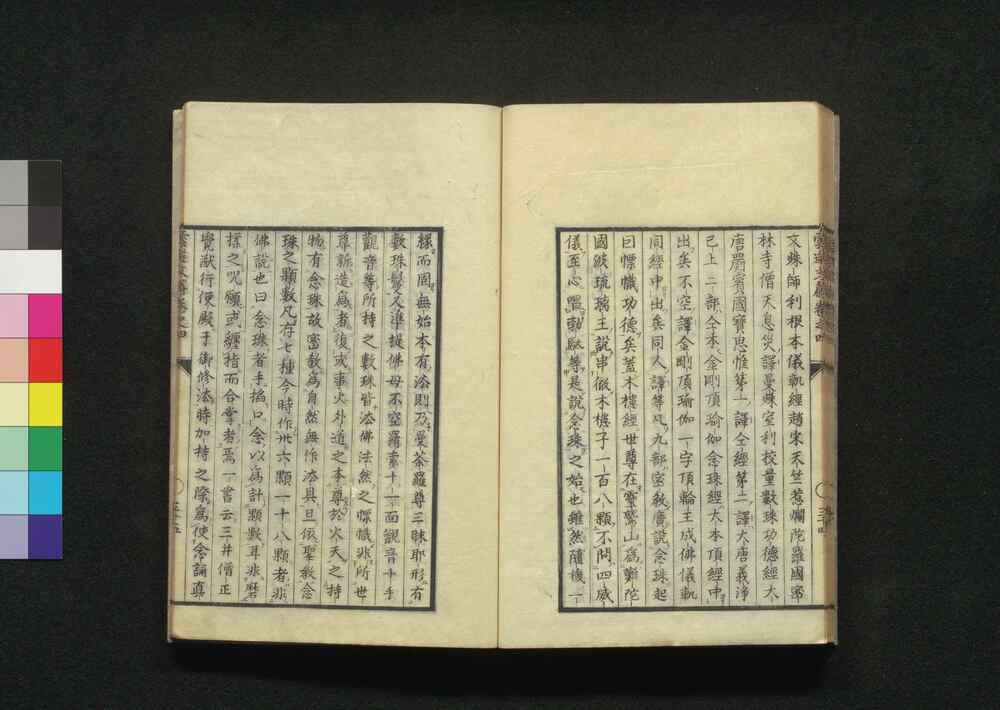 文殊師利根本儀軌經趙宋天竺惹爛陀羅國密
林寺僧天息災譯曼殊室利校量數珠功德經大
唐罽賓國寶思惟第一譯全經第二譯大唐義淨
已上二部全本金剛頂瑜伽念珠經大本頂經中
出矣不空譯金剛頂瑜伽一字頂輪王成佛儀軌
同經中出矣同人譯等凡九部密教廣說念珠起
曰幖幟功德矣蓋木槵經世尊在靈鷲山爲難陀
國毗琉璃王說串做木槵子一百八顆不問四威
儀至心思勤馱等是說念珠之始也雖然隨機一
樣而固無始本有法則乃曼荼羅尊三昧耶形有
數珠鬘又準提佛母不空羅索十一面觀音千手
觀音等所持之數珠皆法佛法然之幖幟非所世
尊新造爲者復或事火外道之本尊於火天之持
物有念珠故密教爲自然無作法具且依聖教念
珠之顆數凡有七種今時作卅六顆一十八顆者非
佛說也曰念珠者手搯口念以爲計顆數耳非磨
搽之呪願或纏指而合掌者焉一書云三井僧正
覺猷行便殿于御修法時加持之際爲使念誦眞